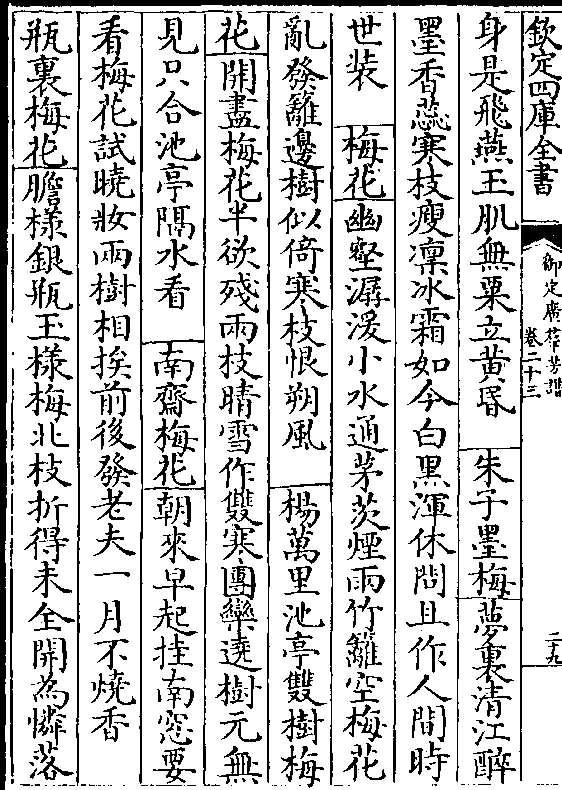 欽定四庫全書
御定廣群芳譜
卷二十三
二十九
身是飛燕玉肌無粟立黃昏 朱子墨梅夢裏清江醉
墨香蕊寒枝瘦凜冰霜如今白黑渾休問且作人間時
世装 梅花幽壑潺湲小水通茅茨煙雨竹籬空梅花
亂發籬邊樹似倚寒枝恨朔風 楊萬里池亭雙樹梅
花開盡梅花半欲殘兩枝晴雪作雙寒團欒遶樹元無
見只合池亭隔水看 南齋梅花朝來早起挂南窓要
看梅花試曉妝兩樹相挨前後發老夫一月不燒香
瓶裏梅花膽樣銀瓶玉樣梅北枝折得未全開為憐落